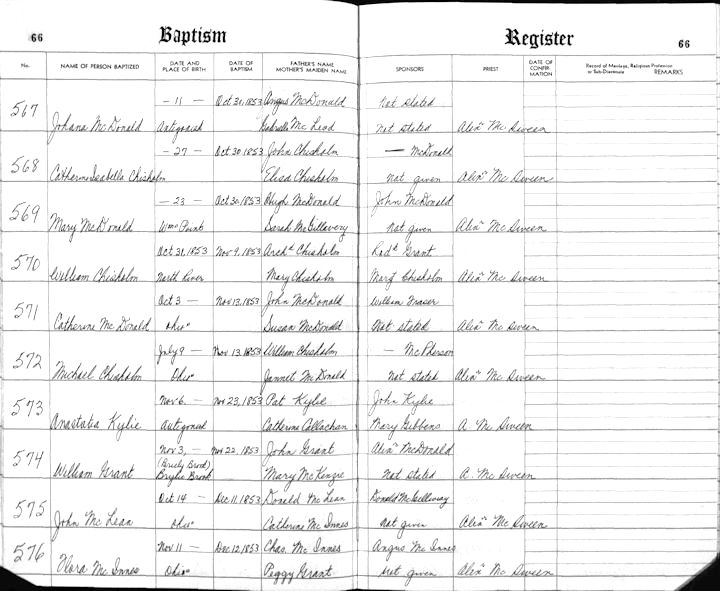 66 Baptism Register 66
No. NAME OF PERSON BAPTIZED DATE AND PLACE OF BIRTH DATE OF BAPTISM FATHER'S NAME MOTHER'S MAIDEN NAME SPONSORS PRIEST DATE OF CONFIRMATION Record of Marriage, Religious Profession or Sub-Diaconate REMARKS
567 — 11 — Oct 31, 1853 Angus McDonald Not stated
Johana McDonald Antigonish Gabriella McLeod Not stated Alexr McSween
568 — 27 — Oct 30 1853 John Chisholm — McDonald
Catherine Isabella Chisholm Elisa Chisholm Not given Alexr McSween
569 — 23 — Oct 30 1853 Hugh McDonald John McDonald
Mary McDonald Wms Point Sarah McGillavery Not given Alexr McSween
570 Oct 31, 1853 Nov 9, 1853 Archd Chisholm Rodk Grant
William Chisholm North River Mary Chisholm Margt Chisholm Alexr McSween
571 Oct 3 — Nov 13, 1853 John McDonald William Fraser
Catherine McDonald Ohio Susan McDonald Not stated Alexr McSween
572 July 9 — Nov 13, 1853 William Chisholm — McPherson
Michael Chisholm Ohio Jannet McDonald Not stated Alexr McSween
573 Nov 6. — Nov 23, 1853 Pat Kylie John Kylie
Anastatia Kylie Antigonish Catherine Callachan Mary Gibbens A. McSween
574 Nov 3, — Nov 22, 1853 John Grant Alexr McDonald
William Grant Brylie Brook Mary McKenzie Not stated A. McSween
575 Oct 14 — Dec 11, 1853 Donald McLean Donald McGillavay
John McLean Ohio Catherine McInnes Not given Alexr McSween
576 Nov 11 — Dec 12, 1853 Chas. McInnes Angus McInnes
Flora McInnes Ohio Peggy Grant Not given Alexr McSween